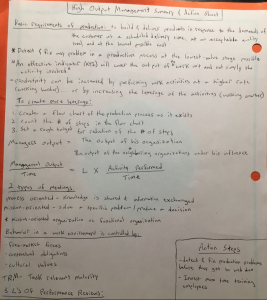 High Output Management Summary & Action Sheet
Basic requirements of production: to build & deliver products in response to the demands of
the customer at a scheduled delivery time, at an acceptable quality
level, and at the lowest possible cost
* Detect & fix any problem in a production process at the lowest value stage possible
* An effective indicator (KPI) will cover the output of the work unit and not simply the
activity involved
* Productivity can be increased by performing work activities at a higher rate
(working harder), or by increasing the leverage of the activities (working smarter)
To create more leverage:
1. Create a flow chart of the production process as it exists
2. Count the # of steps in the flow chart
3. Set a rough target for reduction of the # of steps
Managers output = The output of his organization
The output of the neighboring organizations under his influence
Management Output / Time = L X Activity Performed / Time
2 types of meetings:
process oriented - knowledge is shared & information exchanged
mission-oriented - solve a specific problem / produce a decision
* mission-oriented organization vs functional organization
Behavior in a work environment is controlled by:
free-market forces
contractual obligations
cultural values
TRM - Task relevant maturity
3 L's of Performance Reviews:
Action Steps
- Detect & fix production problems
before they get to
- Invest more time training
employees